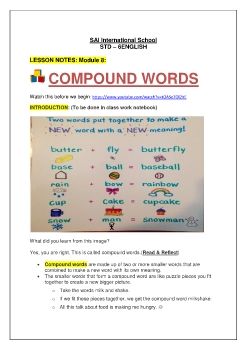 SAI International School
STD – 6ENGLISH
LESSON NOTES: Module 8:
COMPOUND WORDS
Watch this before we begin:
INTRODUCTION: (To be done in class work notebook)
Two words put together to make a
NEW word with a NEW meaning!
butter + fly = butterfly
base + ball = baseball
rain + bow = rainbow
cup + cake = cupcake
snow + man = snowman
What did you learn from this image?
Yes, you are right. This is called compound words (Read & Reflect)
• Compound words are made up of two or more smaller words that are
combined to make a new word with its own meaning.
• The smaller words that form a compound word are like puzzle pieces you fit
together to create a new bigger picture.
o Take the words milk and shake.
o If we fit those pieces together, we get the compound word milkshake.
o All this talk about food is making me hungry. ☺